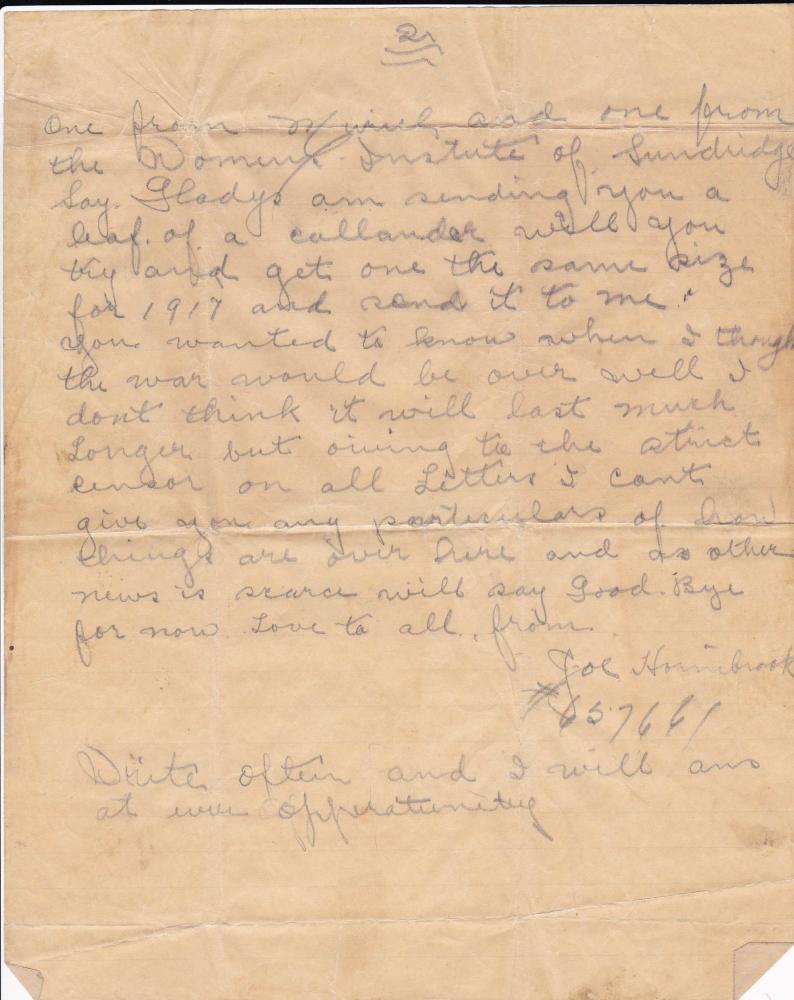 2
One from Muriel and one from
the Women's Instute of Sundridge
Say. Gladys am sending you a
leaf. of. a callander will you
try and get one the same size
for 1917 and send it to me.
you wanted to know when I though
the war would be over well I
dont think it will last much
Longer but owing to the strict
censor on all Letters I cant
give you any particulars of how
things are over here and as other
news is scarce will say Good. Bye
for now. Love to all. from.
Joe Hornibrook
#657661
Write often and I will ans
at opperatunity